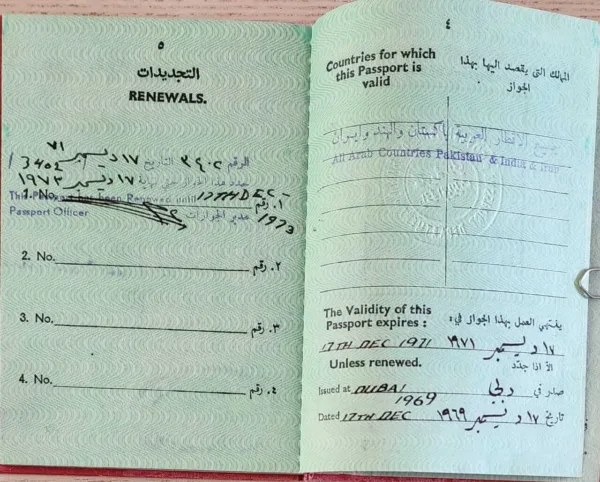 ٥
التجديدات
RENEWALS.
الرقم ٣٤٠٢ التاريخ ١٧ ديسمبر ٧١
جدد هذا الجواز حتى نهاية ١٧ ديسمبر ١٩٧٣
1. No. ١. رقم
This Passport has been Renewed until 17TH DEC - 1973
Passport Officer مدير الجوازات
2. No. ٢. رقم
3. No. ٣. رقم
4. No. ٤. رقم
٤
Countries for which this Passport is valid
الممالك التي يقصد اليها بهذا الجواز
جميع الاقطار العربية باكستان والهند وايران
All Arab Countries Pakistan & India & Iran
The Validity of this Passport expires :
ينتهي العمل بهذا الجواز في:
17TH DEC 1971 ١٧ ديسمبر ١٩٧١
Unless renewed. الا اذا جدد
Issued at DUBAI صادر في دبي
Dated 17TH DEC 1969 تاريخ ١٧ ديسمبر ١٩٦٩